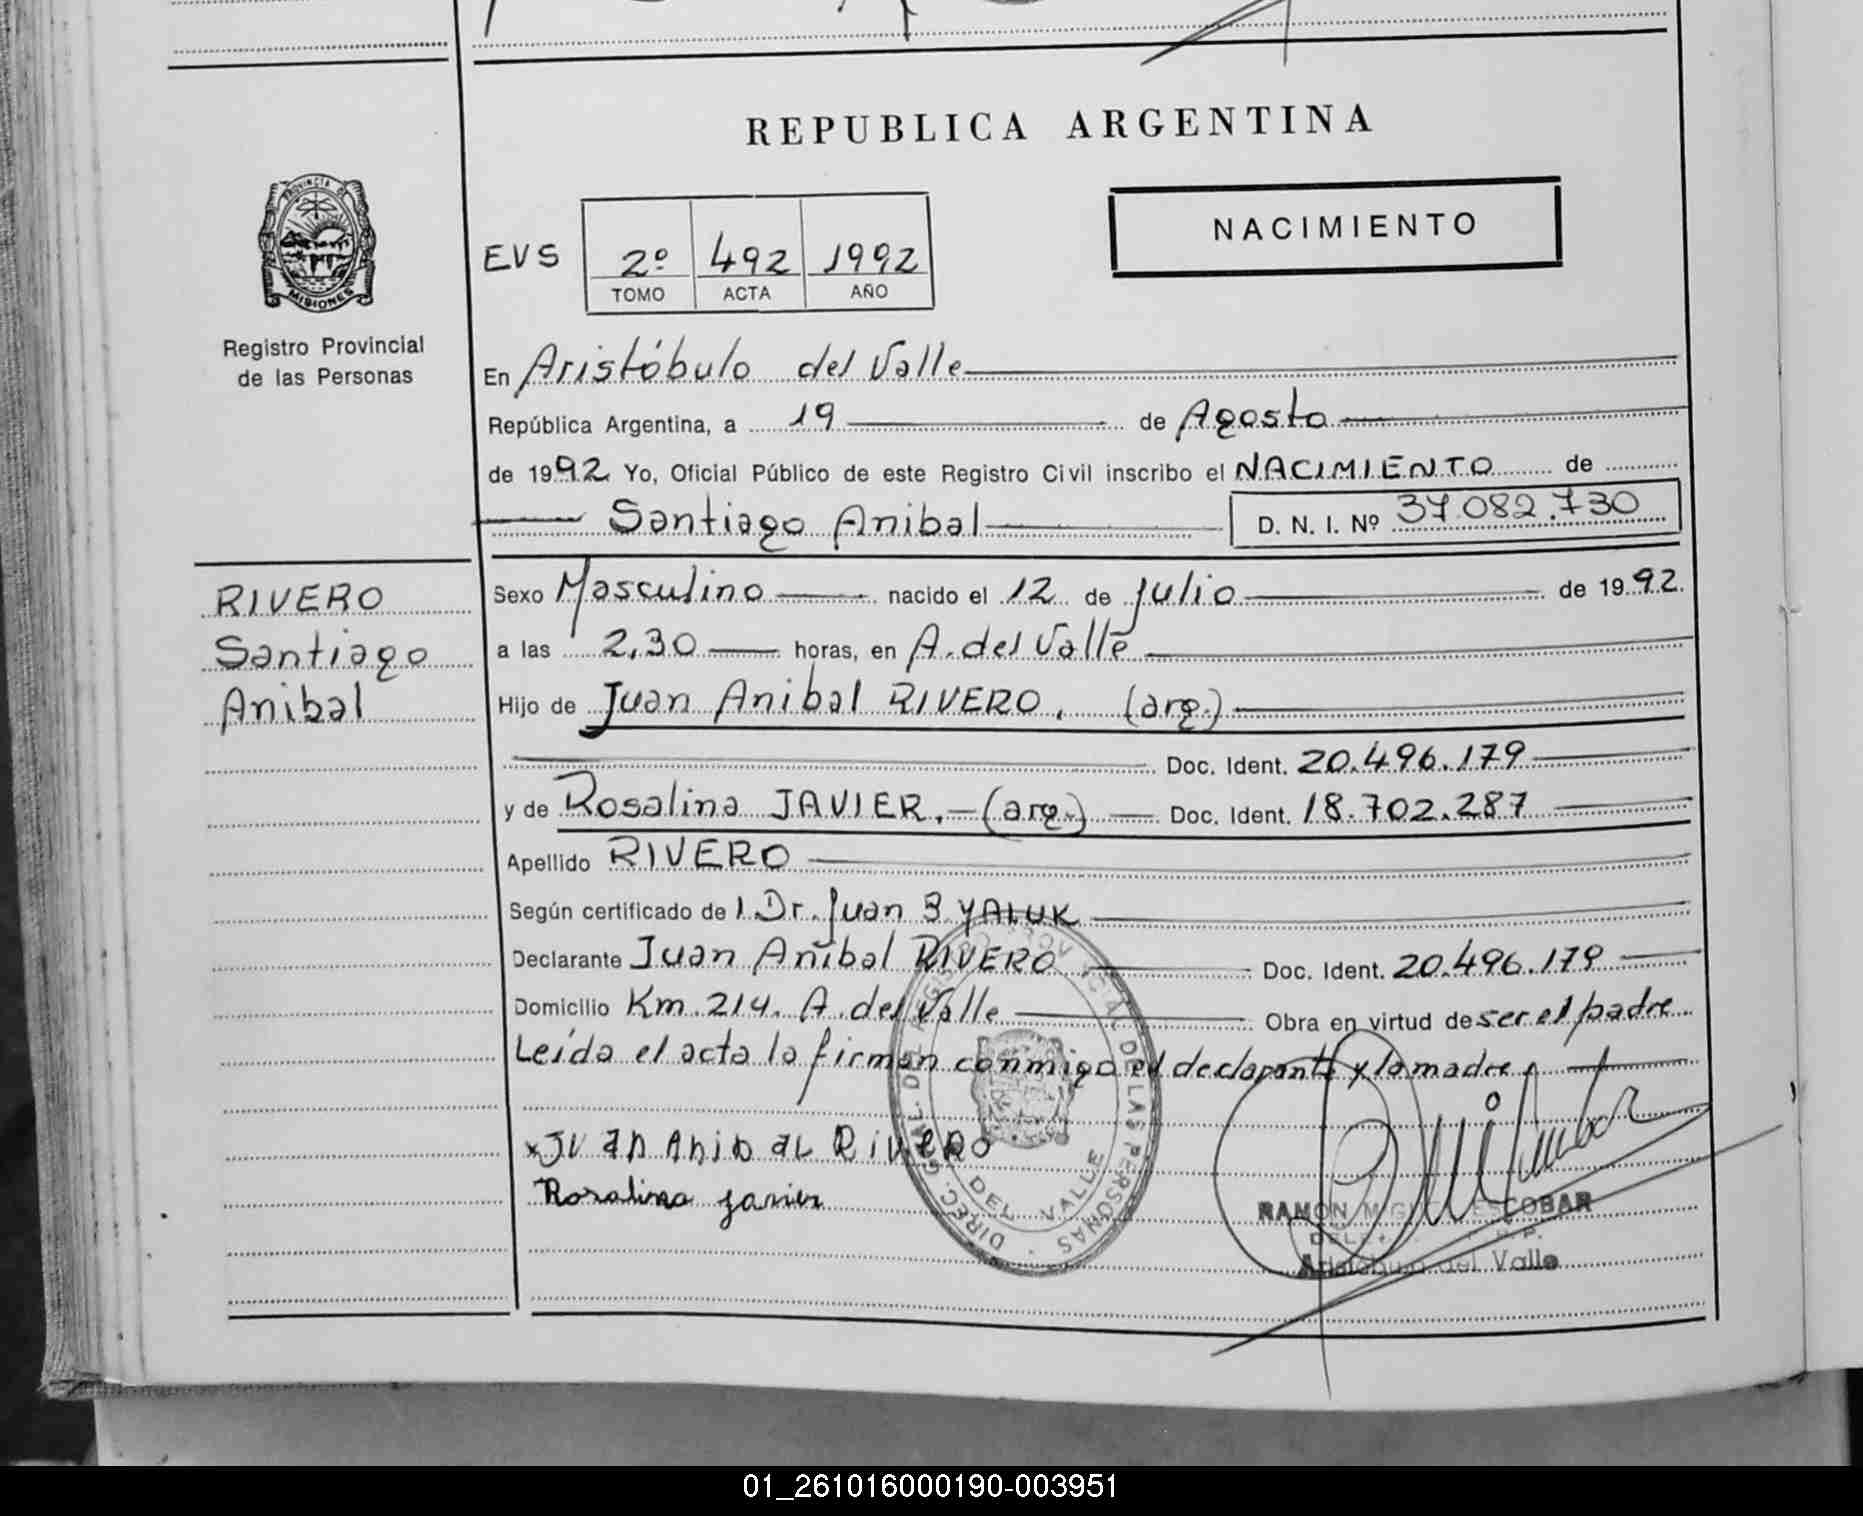 REPUBLICA ARGENTINA
PROVINCIA D
MISIONES
Registro Provincial
de las Personas
NACIMIENTO
EVS 2º 492 1992
TOMO ACTA AÑO
En Aristóbulo del Valle
República Argentina, a 19 de Agosto
de 1992 Yo, Oficial Público de este Registro Civil inscribo el NACIMIENTO de
Santiago Anibal D. N. I. Nº 37.082.730
RIVERO
Santiago
Anibal
Sexo Masculino nacido el 12 de Julio de 1992.
a las 2,30 horas, en A. del Valle
Hijo de Juan Anibal RIVERO, (arg.)
Doc. Ident. 20.496.179
y de Rosalina JAVIER, (arg.) Doc. Ident. 18.702.287
Apellido RIVERO
Según certificado de l Dr. Juan B YALUK
Declarante Juan Anibal RIVERO Doc. Ident. 20.496.179
Domicilio Km. 214. A. del Valle Obra en virtud de ser el padre
Leída el acta la firman conmigo el declarante y la madre
x JUAN ANIBAL RIVERO
Rosalina Javier
DIREC. GRAL. DEL REGISTRO PROVINCIAL DE LAS PERSONAS
DEL VALLE
RAMON MIGUEL ESCOBAR
Aristóbulo del Valle
01_261016000190-003951